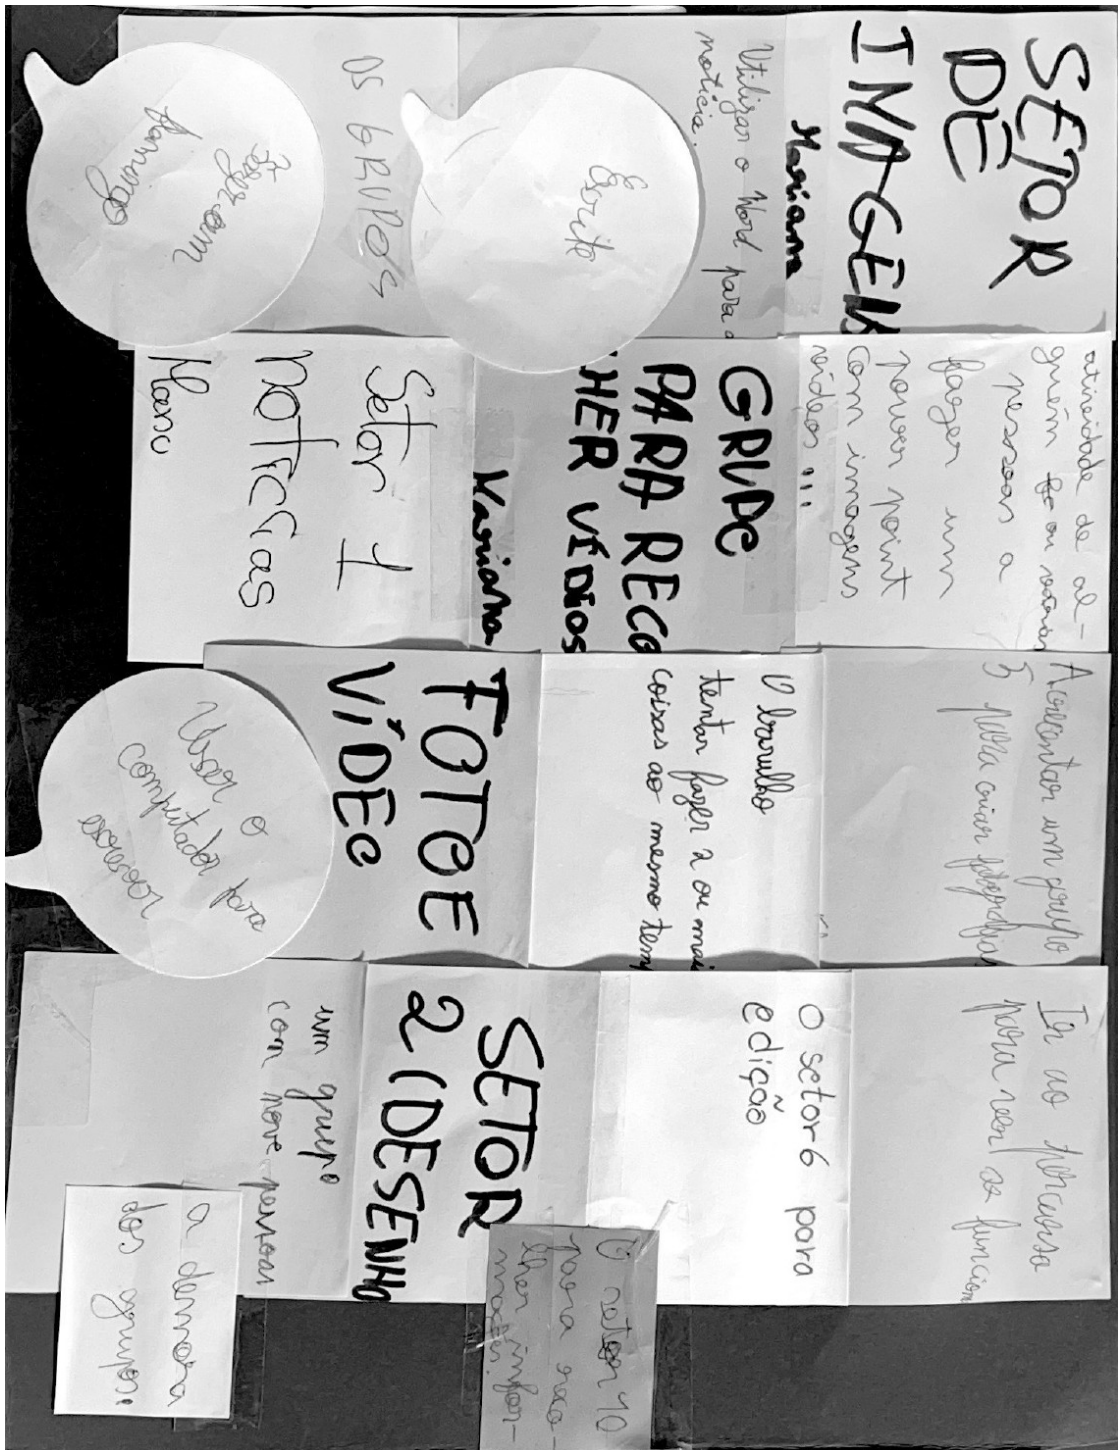 SETOR
DE
IMAGENS
Mariana
Utilizar o Word para a
notícia.
Escrita
OS GRUPOS
flamingo
atividade de al-
guém ou várias
pessoas a
fazer um
power point
com imagens
vídeos ...
GRUPO
PARA RECO
HER VÍDIOS
Mariana
Setor 1
NOTÍCIAS
Manu
Acrescentar um grupo
5 para criar fotografias
O barulho
tentar fazer 2 ou mai
coisas ao mesmo temp
FOTO E
VÍDEO
Usar
o
computador para
escrever
Ir ao percurso
para ver se funciona
O setor 6 para
edição
SETOR
2 (DESENHO
um grupo
com nove pessoas
O setor 10
para reco-
lher infor-
mações.
a demora
dos grupos